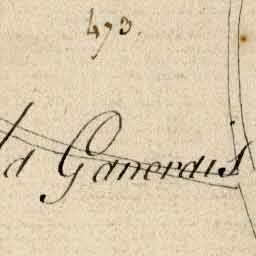 473.
d Ganerais